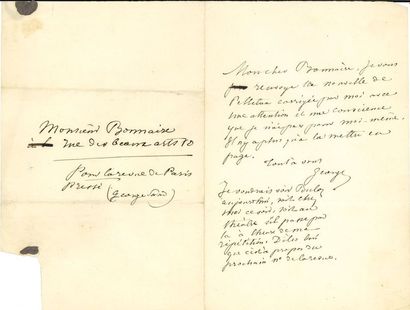 Monsieur Bonnaire
rue des beaux arts 10
Pour la revue de Paris
Pressé (George Sand)
Mon cher Bonnaire, Je vous
renvoye la nouvelle de
Pelletan corrigée par moi avec
une attention et une conscience
que je n'ai pas pour moi-même.
Il n'y a plus qu'à la mettre en
page.
Tout à vous
George
Je voudrais voir Buloz
aujourd'hui, soit chez
moi ce soir, soit au
théâtre s'il passe par
là à l'heure de ma
répétition. Dites lui
que c'est à propos du
prochain n° de la revue.